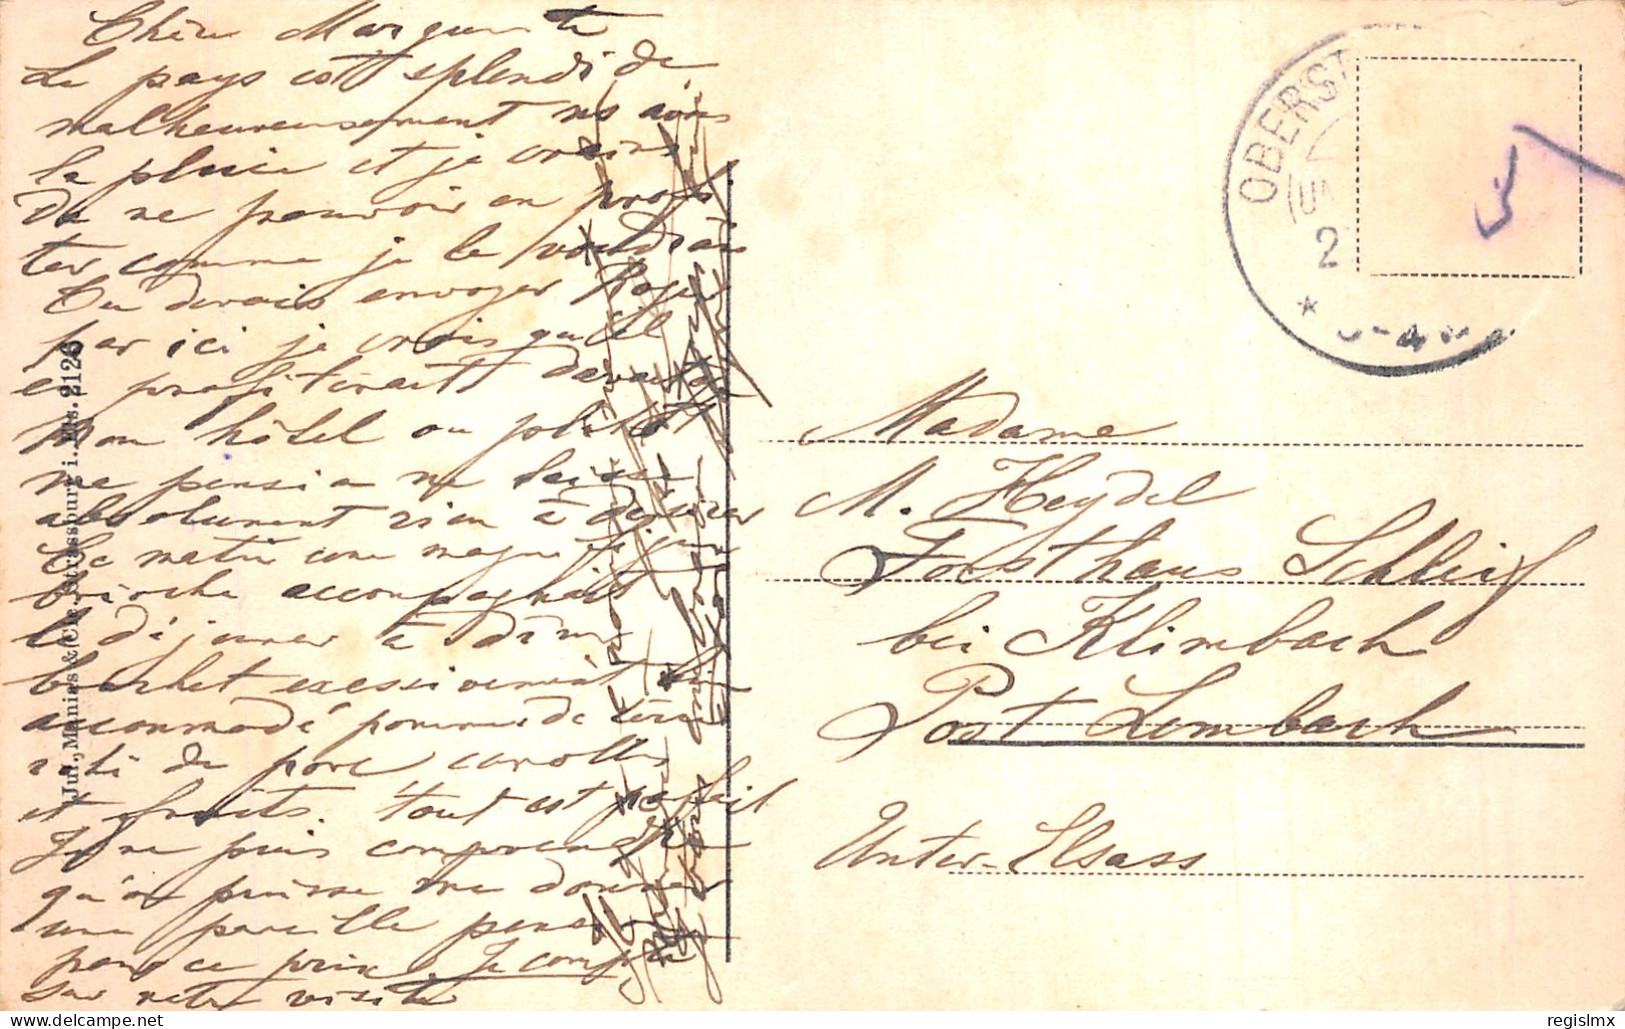 Chère Marguerite
Le pays est splendide
malheureusement ns avons
la pluie et je crains
de ne pouvoir en profi
ter comme je le voudrais
Tu devrais envoyer Roger
par ici je crois qu'il
en profiterait davantage
Mon hôtel ou plutôt
ma pension ne laisse
absolument rien à désirer
Ce matin une magnifique
brioche accompagnait
le déjeuner à dîner
brochet excessivement bien
accommodé pommes de terre
rôti de porc carottes
et fruits. tout est parfait
Je ne puis comprendre
qu'on puisse me donner
une pareille pension
pour ce prix. Je compte
sur votre visite
Jul. Manias & Cie. Strassburg i. Els. 2126
OBERST
2
Madame
M. Heydel
Forsthaus Schleif
bei Klimbach
Post Lembach
Unter-Elsass
regislmx